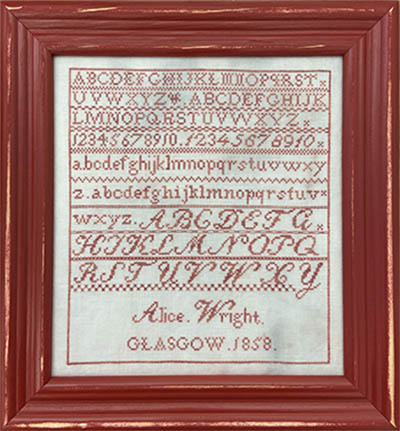 ABCDEFGHIJKLMNOPQRST.
UVWXYZ&.ABCDEFGHIJK
LMNOPQRSTUVWXYZ.
12345678910.12345678910.
abcdefghijklmnopqrstuvwxy
z.abcdefghijklmnopqrstuv
wxyz.ABCDEFG
HIKLMNOPQ
RSTUVWXY
Alice.Wright.
GLASGOW.1858.